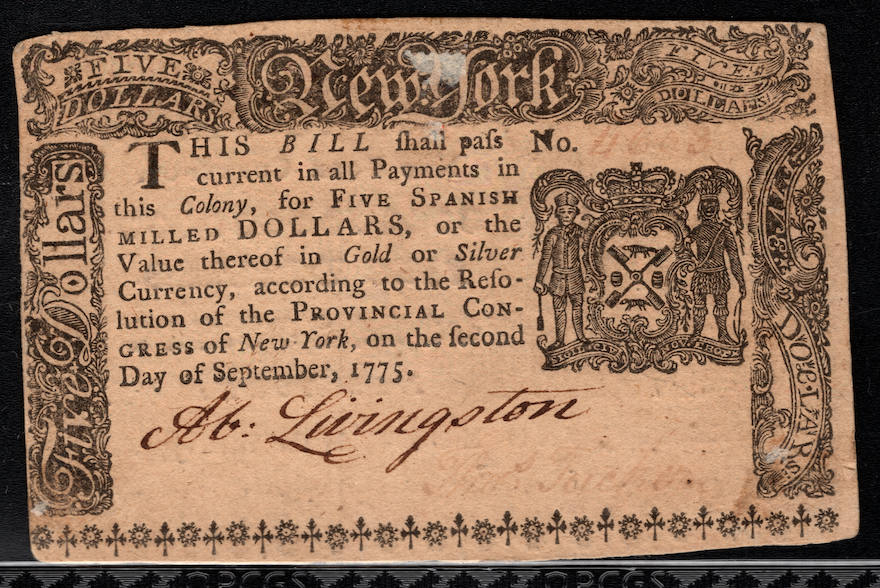 FIVE DOLLARS
New-York
FIVE DOLLARS
Five Dollars
THIS BILL ſhall paſs
current in all Payments in
this Colony, for FIVE SPANISH
MILLED DOLLARS, or the
Value thereof in Gold or Silver
Currency, according to the Reſo-
lution of the PROVINCIAL CON-
GRESS of New-York, on the ſecond
Day of September, 1775.
No.
FIVE DOLLARS
Ab: Livingston
PCGS